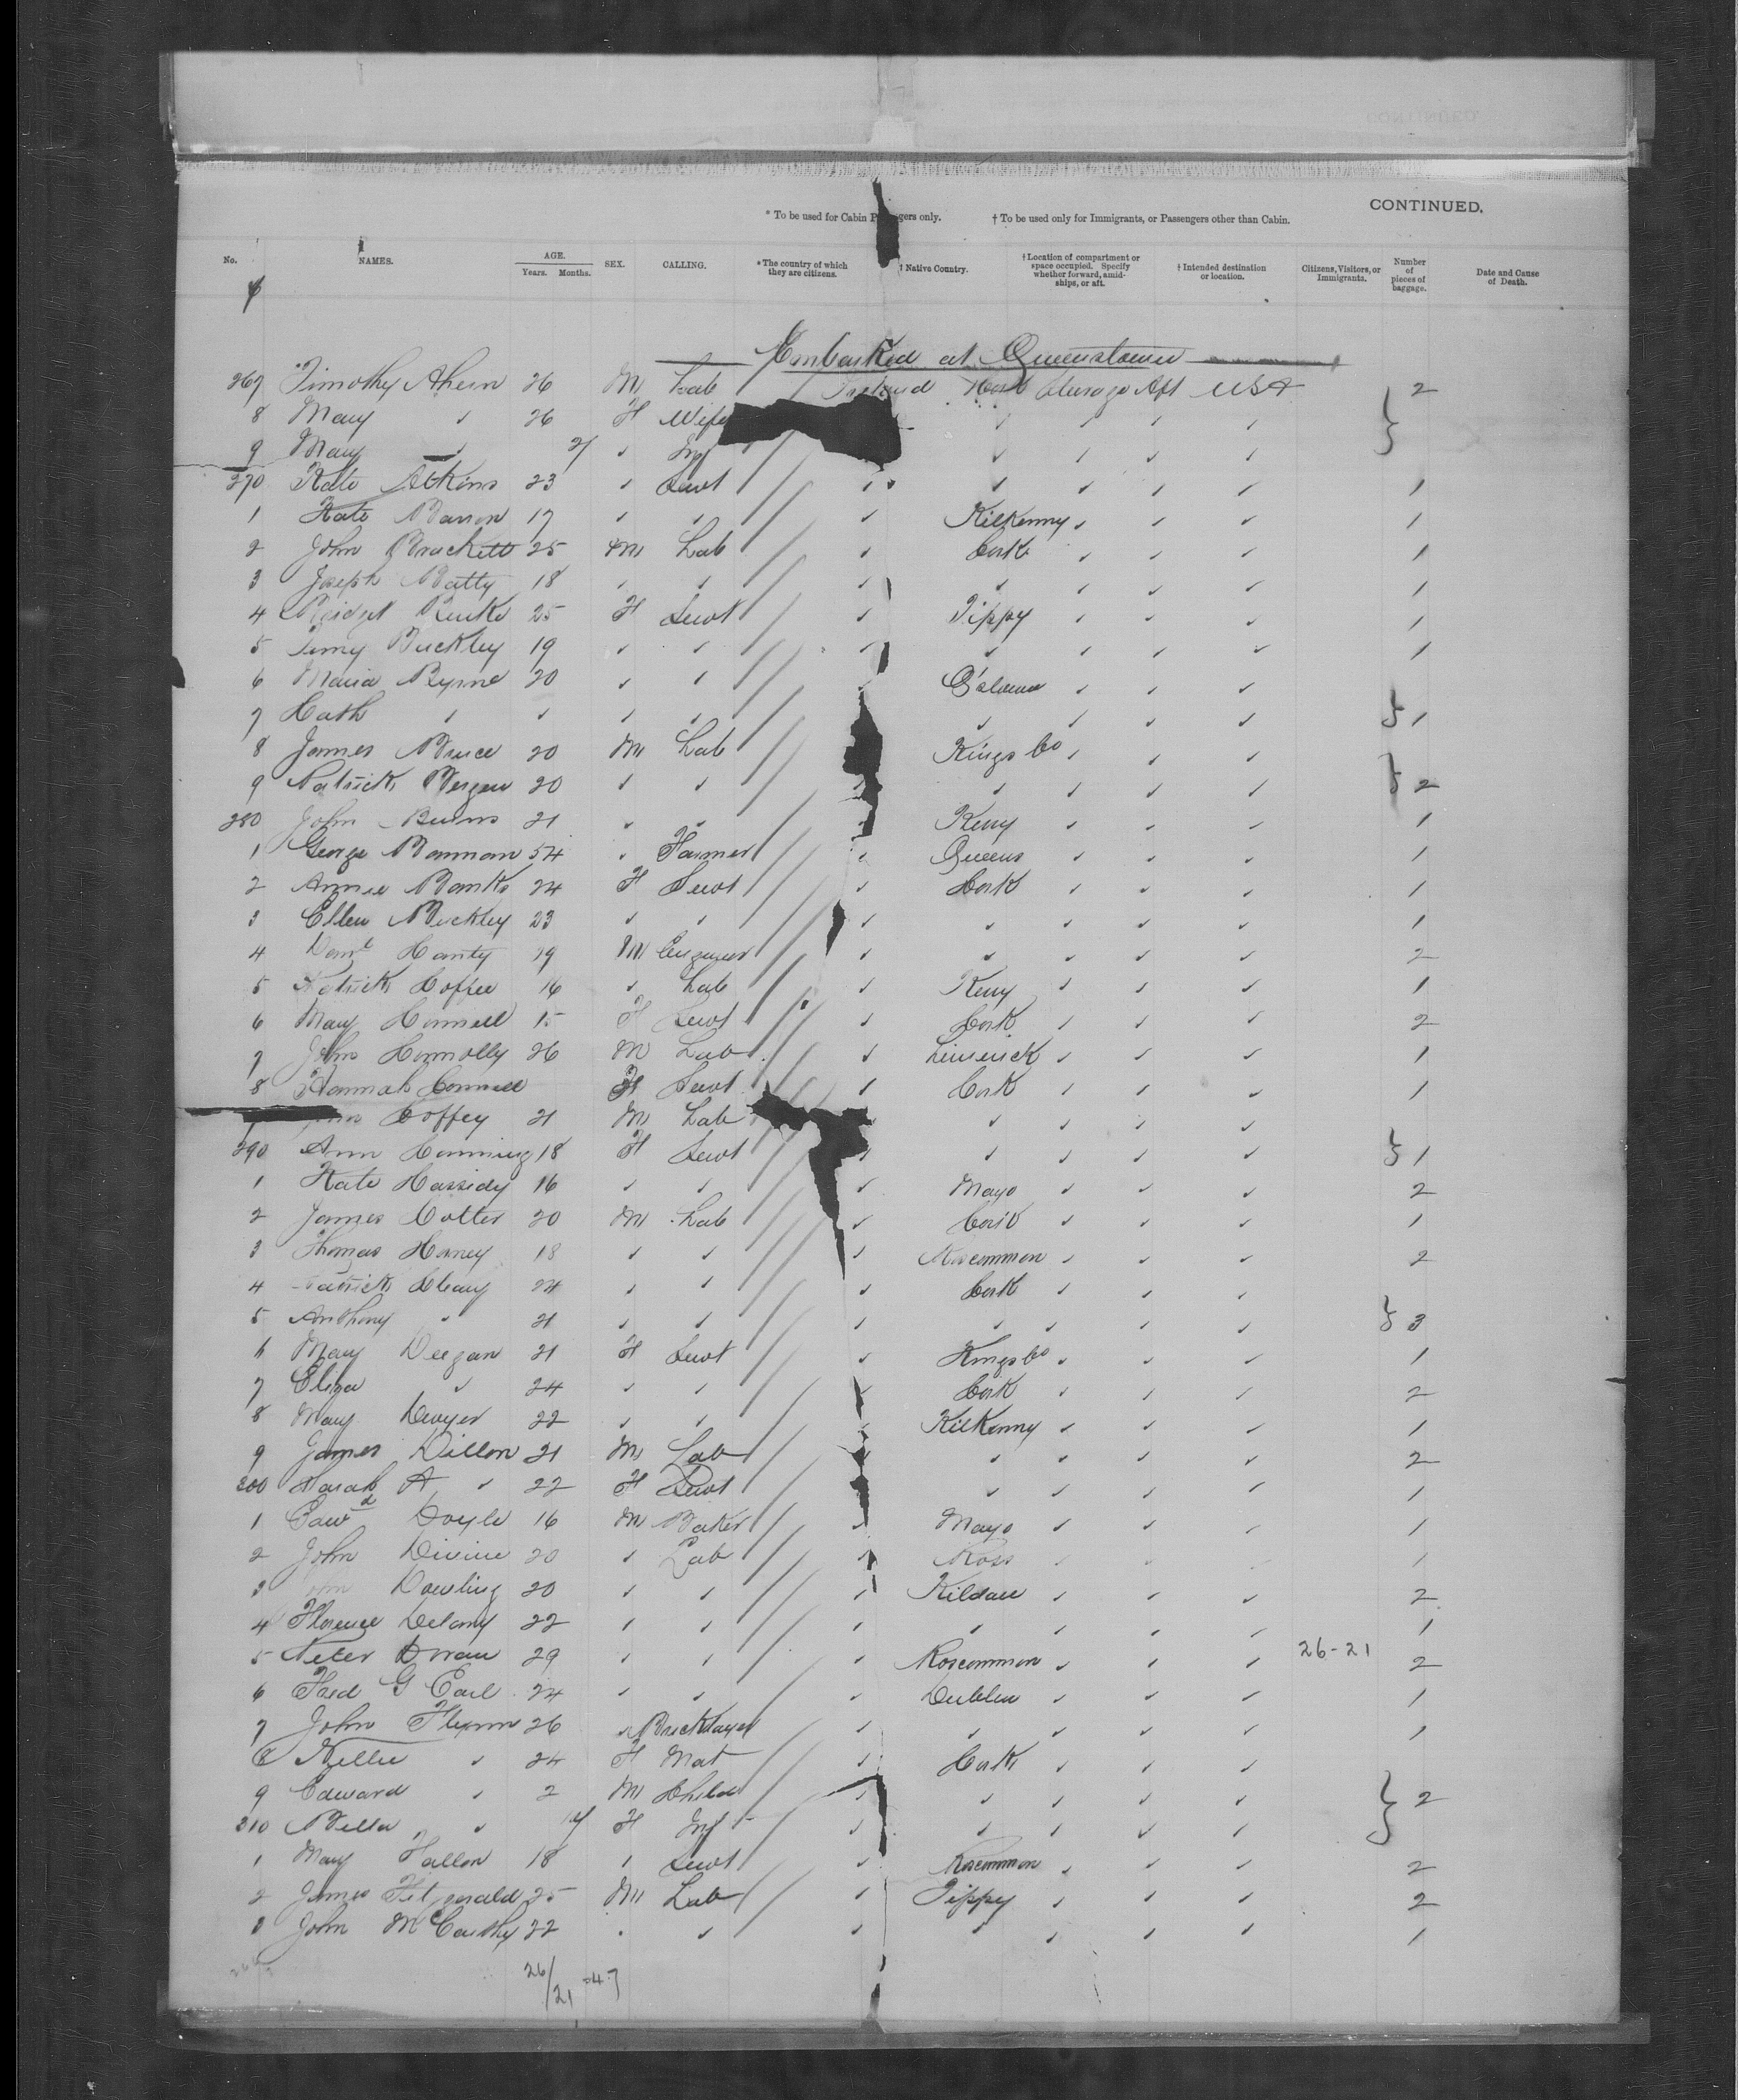 CONTINUED.
* To be used for Cabin Passengers only. † To be used only for Immigrants, or Passengers other than Cabin.
No. NAMES. AGE. Years. Months. SEX. CALLING. *The country of which they are citizens. † Native Country. †Location of compartment or space occupied. Specify whether forward, amidships, or aft. †Intended destination or location. Citizens, Visitors, or Immigrants. Number of pieces of baggage. Date and Cause of Death.
Embarked at Queenstown
267 Timothy Ahern 26 M Lab Ireland Cork Aft USA 2
8 Mary " 26 F Wife
9 Mary " Inf
270 Kate Atkins 23 " Servt 1
1 Kate Barron 17 " " Kilkenny 1
2 John Brackett 25 M Lab Cork 1
3 Joseph Batty 18 " " 1
4 Bridget Burke 25 F Servt Tippy 1
5 Buckley 19 " " 1
6 Maria Byrne 20 " " Q'stown
7 Cath " " " " 1
8 James Bruce 20 M Lab Kings Co
9 Patrick Bergen 20 " " 2
280 John Burns 21 " " Kerry 1
1 George Bannan 54 " Farmer Queens 1
2 Annie Banks 24 F Servt Cork 1
3 Ellen Buckley 23 " " 1
4 Danl Canty 29 M Engineer 2
5 Patrick Coffee 16 " Lab Kerry 1
6 Mary Connell 15 F Servt Cork 2
7 John Connolly 26 M Lab Limerick 1
8 Hannah Connell F Servt Cork 1
Coffey 21 M Lab
290 Ann Canning 18 F Servt 1
1 Kate Cassidy 16 " " Mayo 2
2 James Cotter 20 M Lab Cork 1
3 Thomas Coney 18 " " Roscommon 2
4 Patrick Cleary 24 " " Cork
5 Anthony " 21 " " 3
6 Mary Deegan 21 F Servt Kings Co 1
7 Eliza " 24 " " Cork 2
8 Mary Dwyer 22 " " Kilkenny 1
9 James Dillon 21 M Lab 2
300 Sarah A " 22 F Servt 1
1 Edwd Doyle 16 M Baker Mayo 1
2 John Divine 20 " Lab Ross 1
3 John Dowling 20 " " Kildare 2
4 Florence Delany 22 " " 1
5 Peter Doran 29 " " Roscommon 26-21 2
6 Fred G Earl 24 " " Dublin 1
7 John Flynn 26 " Bricklayer 1
8 Nellie " 24 F Mat Cork
9 Edward " 2 M Child 2
310 Bella " F Inf
1 Mary Fallon 18 " Servt Roscommon 2
2 James Fitzgerald 25 M Lab Tippy 2
3 John McCarthy 22 " " 1
26/21 =47